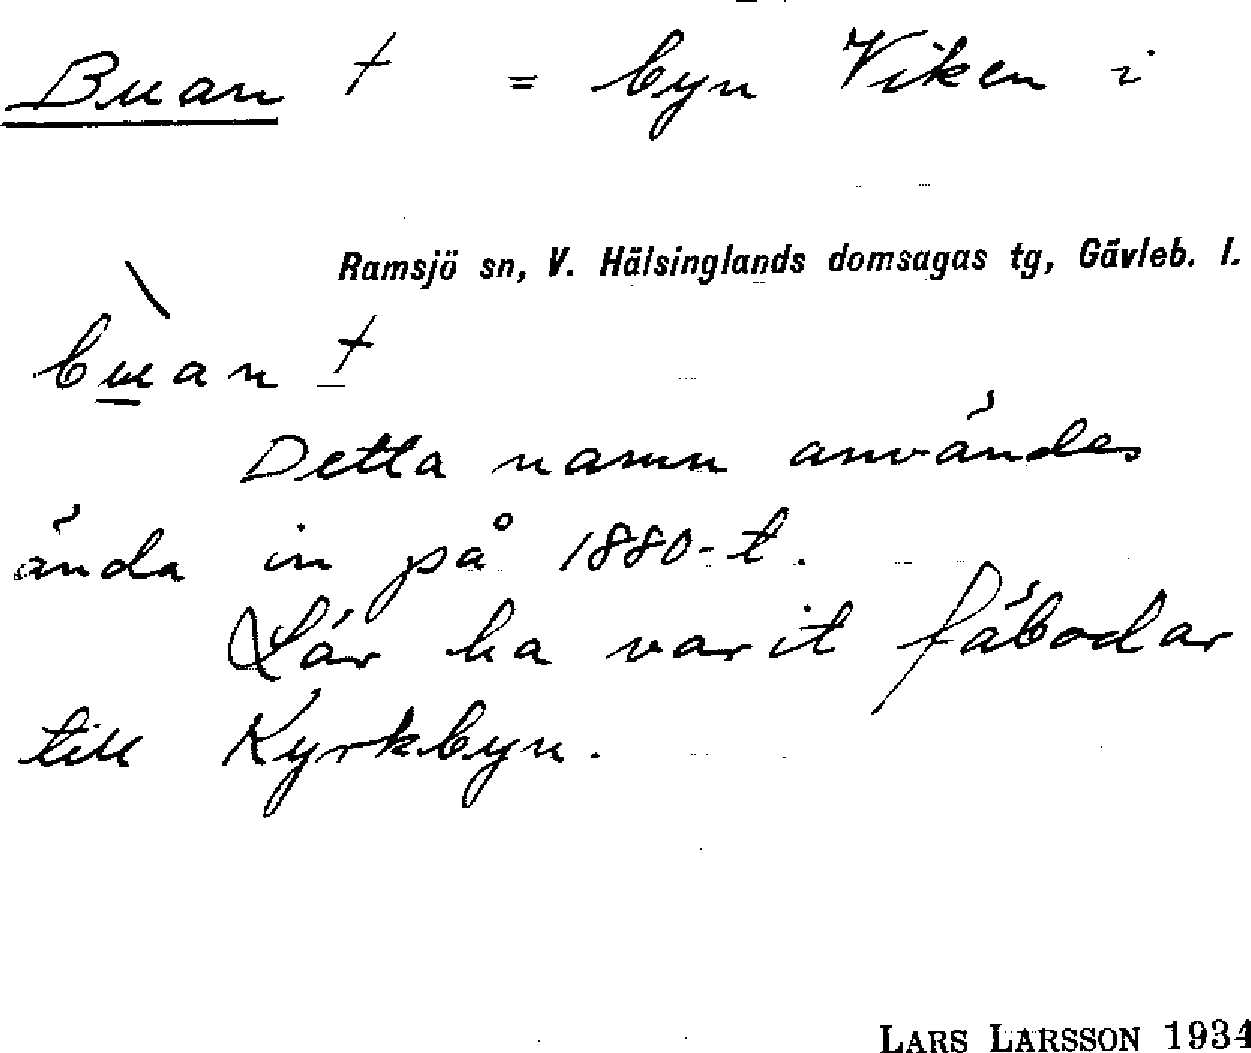 Buan † = byn Viken i
Ramsjö sn, V. Hälsinglands domsagas tg, Gävleb. l.
bùan †
Detta namn användes
ända in på 1880-t.
Lär ha varit fäbodar
till Kyrkbyn.
LARS LARSSON 1934